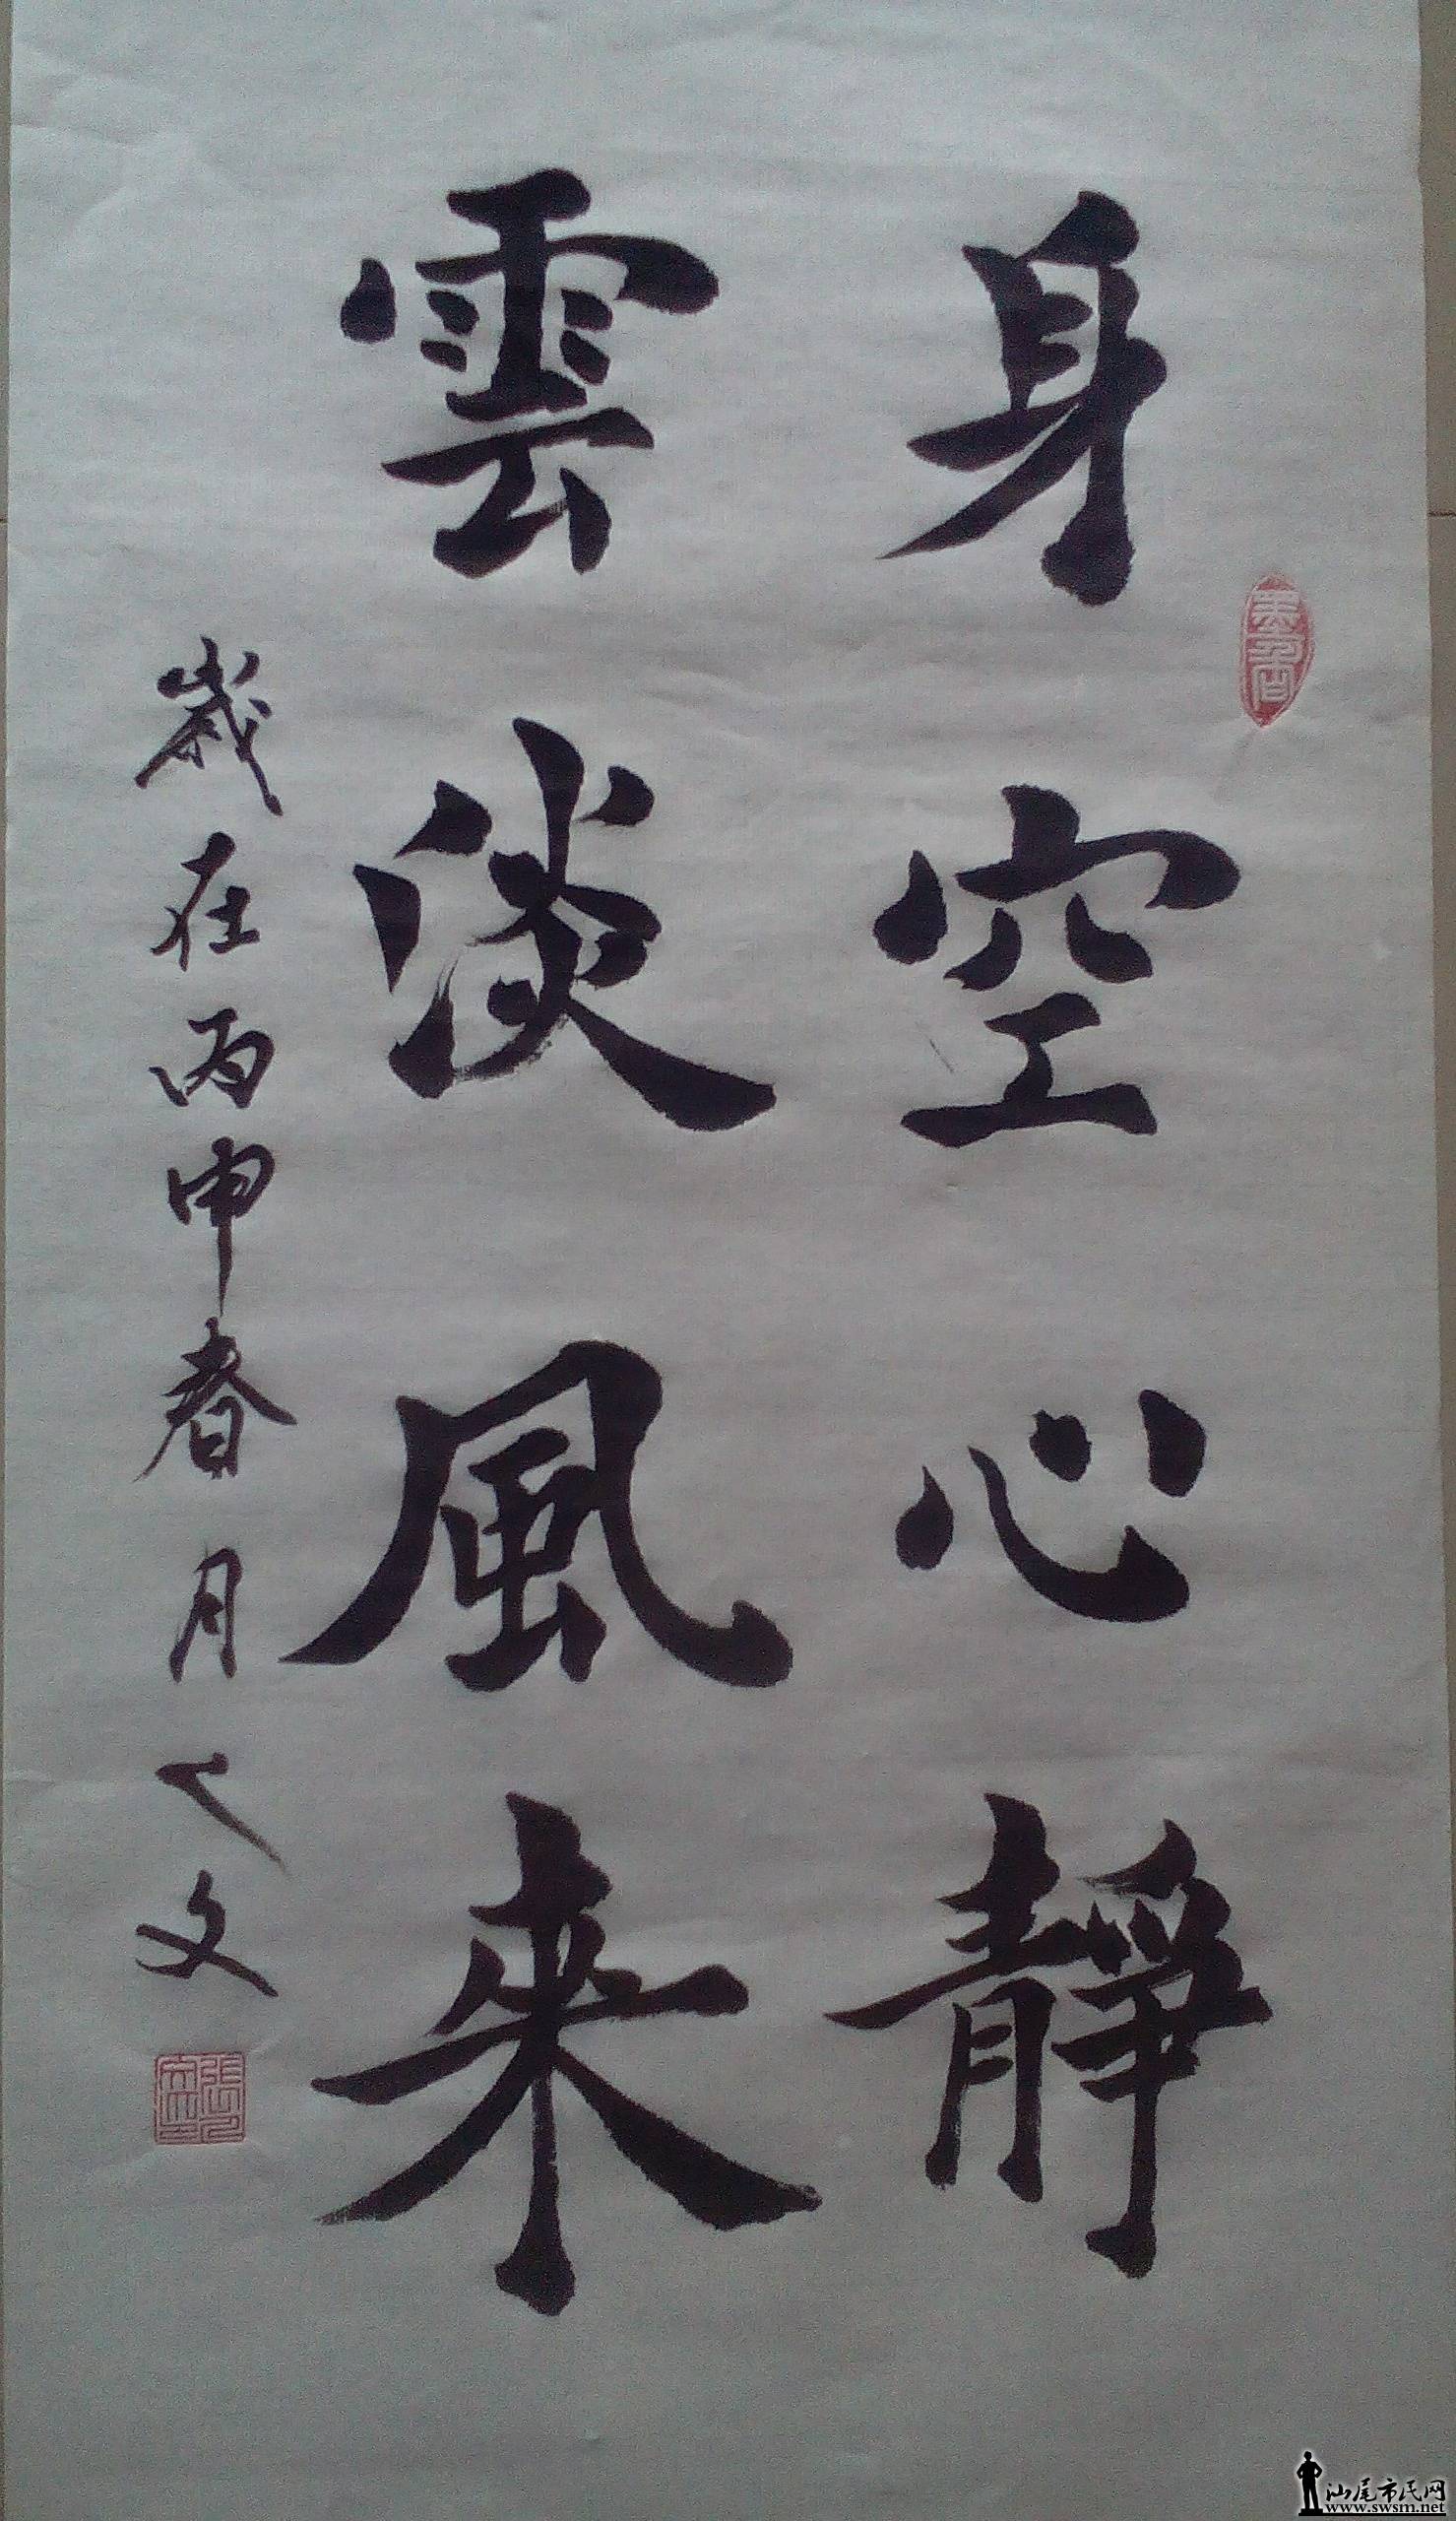 身空心静
雲淡風来
歲在丙申春月
文
汕尾市民网
www.swsm.net